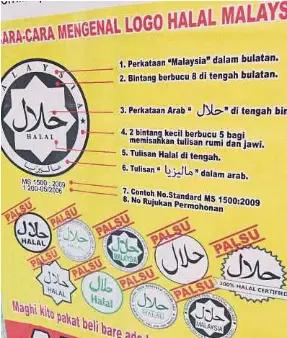 ARA-CARA MENGENAL LOGO HALAL MALAYS
1. Perkataan "Malaysia" dalam bulatan.
2. Bintang berbucu 8 di tengah bulatan.
3. Perkataan Arab "حلال" di tengah bin
4. 2 bintang kecil berbucu 5 bagi
memisahkan tulisan rumi dan jawi.
5. Tulisan Halal di tengah.
6. Tulisan "ماليزيا" dalam arab.
7. Contoh No.Standard MS 1500:2009
8. No Rujukan Permohonan
MALAYSIA
حلال
HALAL
ماليزيا
MS 1500 : 2009
1 200-05/2006
PALSU
حلال
HALAL
PALSU
حلال
PALSU
حلال
MALAYSIA
PALSU
حلال
PALSU
حلال
100% HALAL CERTIFIED
PALSU
حلال
HALAL
PALSU
حلال
Halal
PALSU
حلال
HALAL
PALSU
حلال
MALAYSIA
Maghi kito pakat beli bare ada